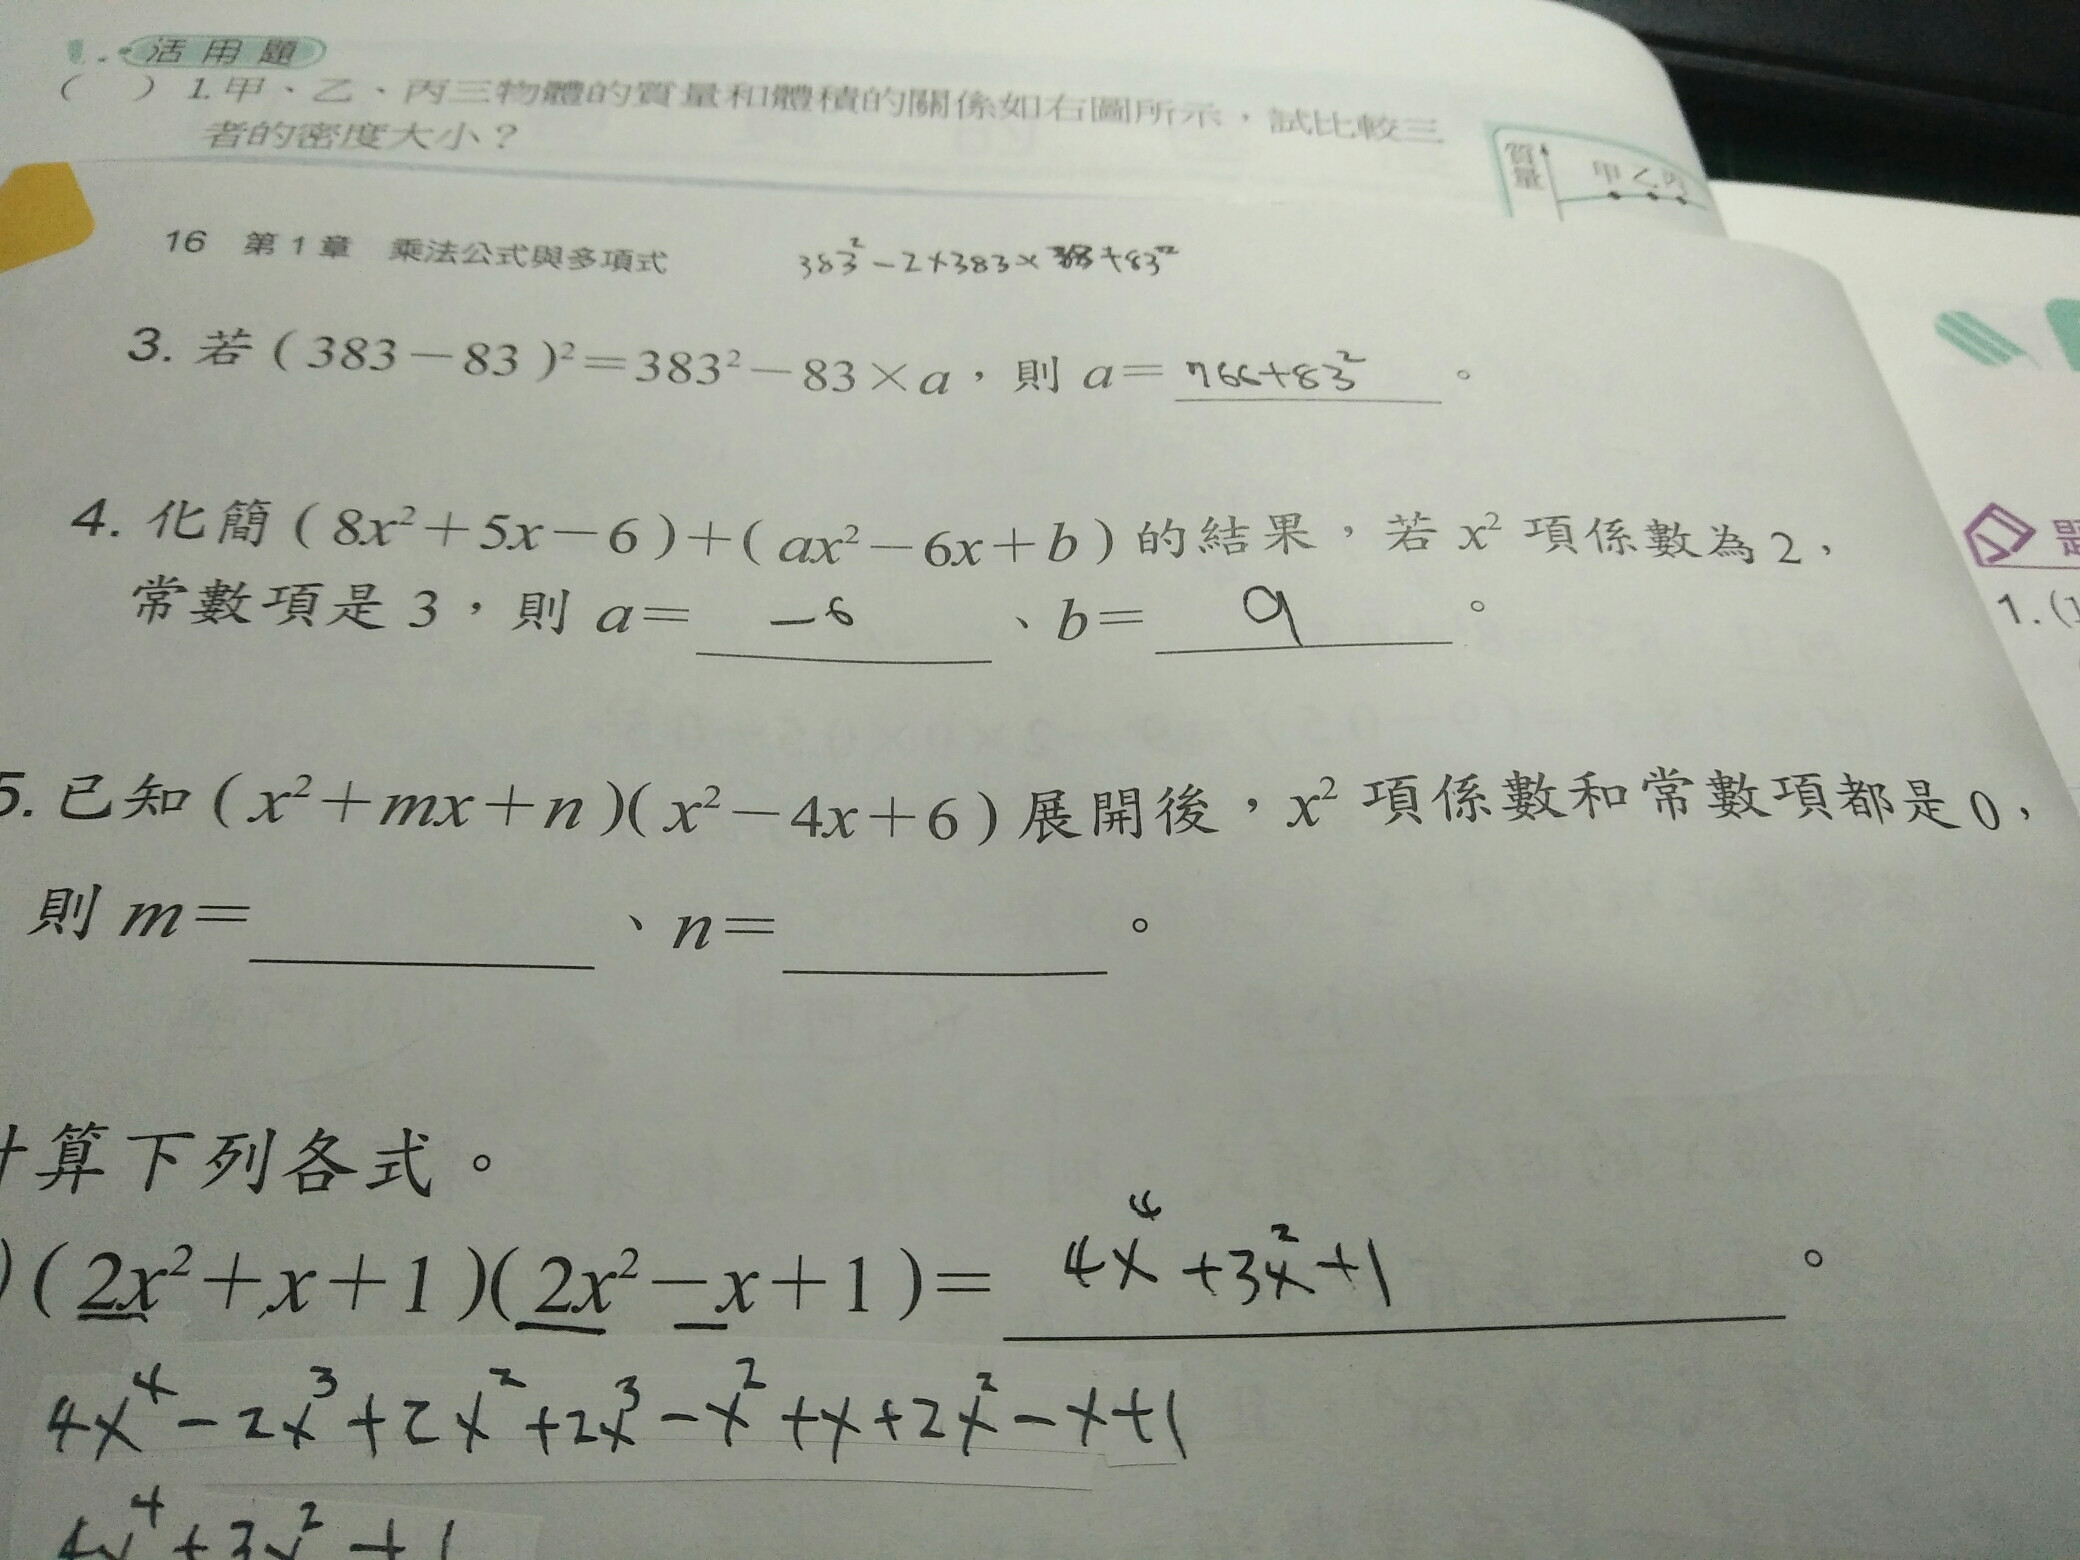 活用題
( ) 1.甲、乙、丙三物體的質量和體積的關係如右圖所示，試比較三
者的密度大小？
質量
甲 乙 丙
16 第1章 乘法公式與多項式
383²－2×383× +83²
3. 若 ( 383－83 )²＝383²－83×a，則 a＝ 766+83² 。
4. 化簡 ( 8x²＋5x－6 )＋( ax²－6x＋b ) 的結果，若 x² 項係數為 2，
常數項是 3，則 a＝ －6 、b＝ 9 。
5. 已知 ( x²＋mx＋n )( x²－4x＋6 ) 展開後，x² 項係數和常數項都是 0，
則 m＝ 、n＝ 。
算下列各式。
) ( 2x²＋x＋1 )( 2x²－x＋1 )＝ 4x⁴+3x²+1 。
4x⁴－2x³+2x²+2x³－x²+x+2x²－x+1
4x⁴+3x²+1
1.(